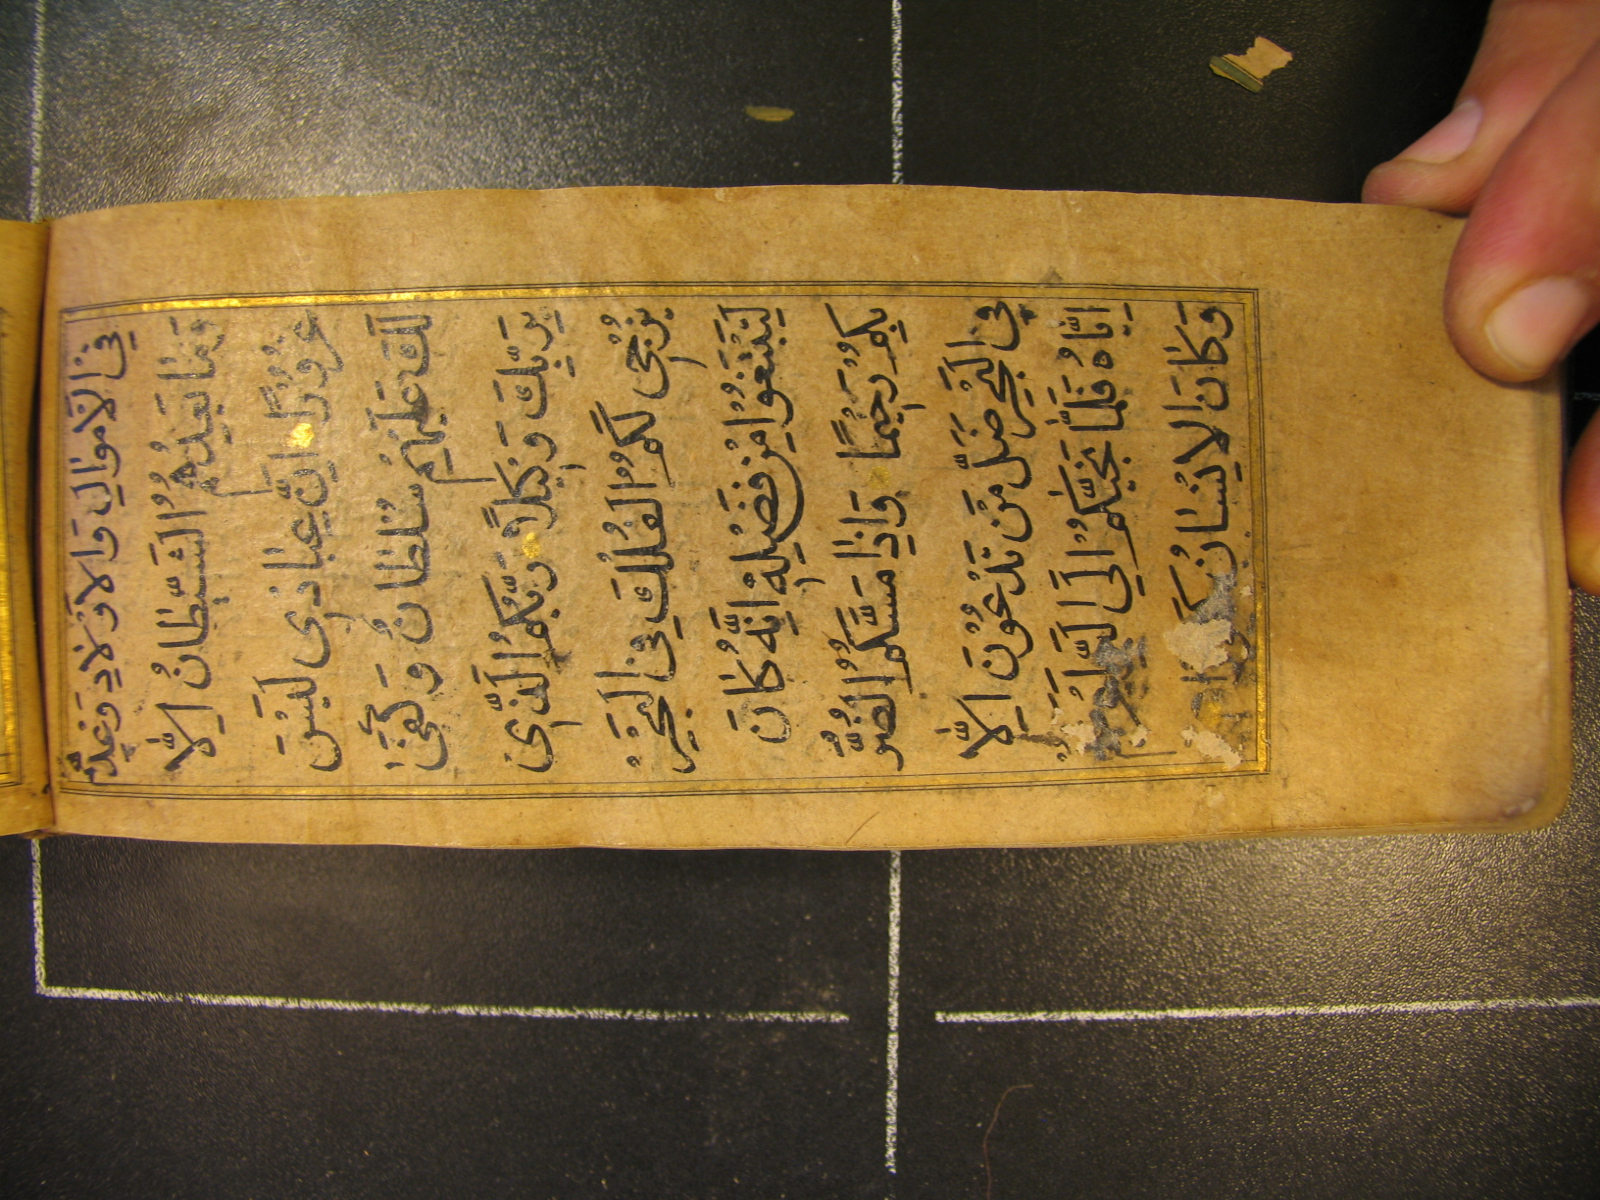 فِي الْاَمْوَالِ وَالْاَوْلَادِ وَعِدْ
وَمَا يَعِدُهُمُ الشَّيْطَانُ اِلَّا
غُرُورًا اِنَّ عِبَادِي لَيْسَ
لَكَ عَلَيْهِمْ سُلْطَانٌ وَكَفَىٰ
بِرَبِّكَ وَكِيلًا رَبُّكُمُ الَّذِي
يُزْجِي لَكُمُ الْفُلْكَ فِي الْبَحْرِ
لِتَبْتَغُوا مِنْ فَضْلِهِ اِنَّهُ كَانَ
بِكُمْ رَحِيمًا وَاِذَا مَسَّكُمُ الضُّرُّ
فِي الْبَحْرِ ضَلَّ مَنْ تَدْعُونَ اِلَّا
اِيَّاهُ فَلَمَّا نَجَّيٰكُمْ اِلَى الْبَرِّ
وَكَانَ الْاِنْسَانُ